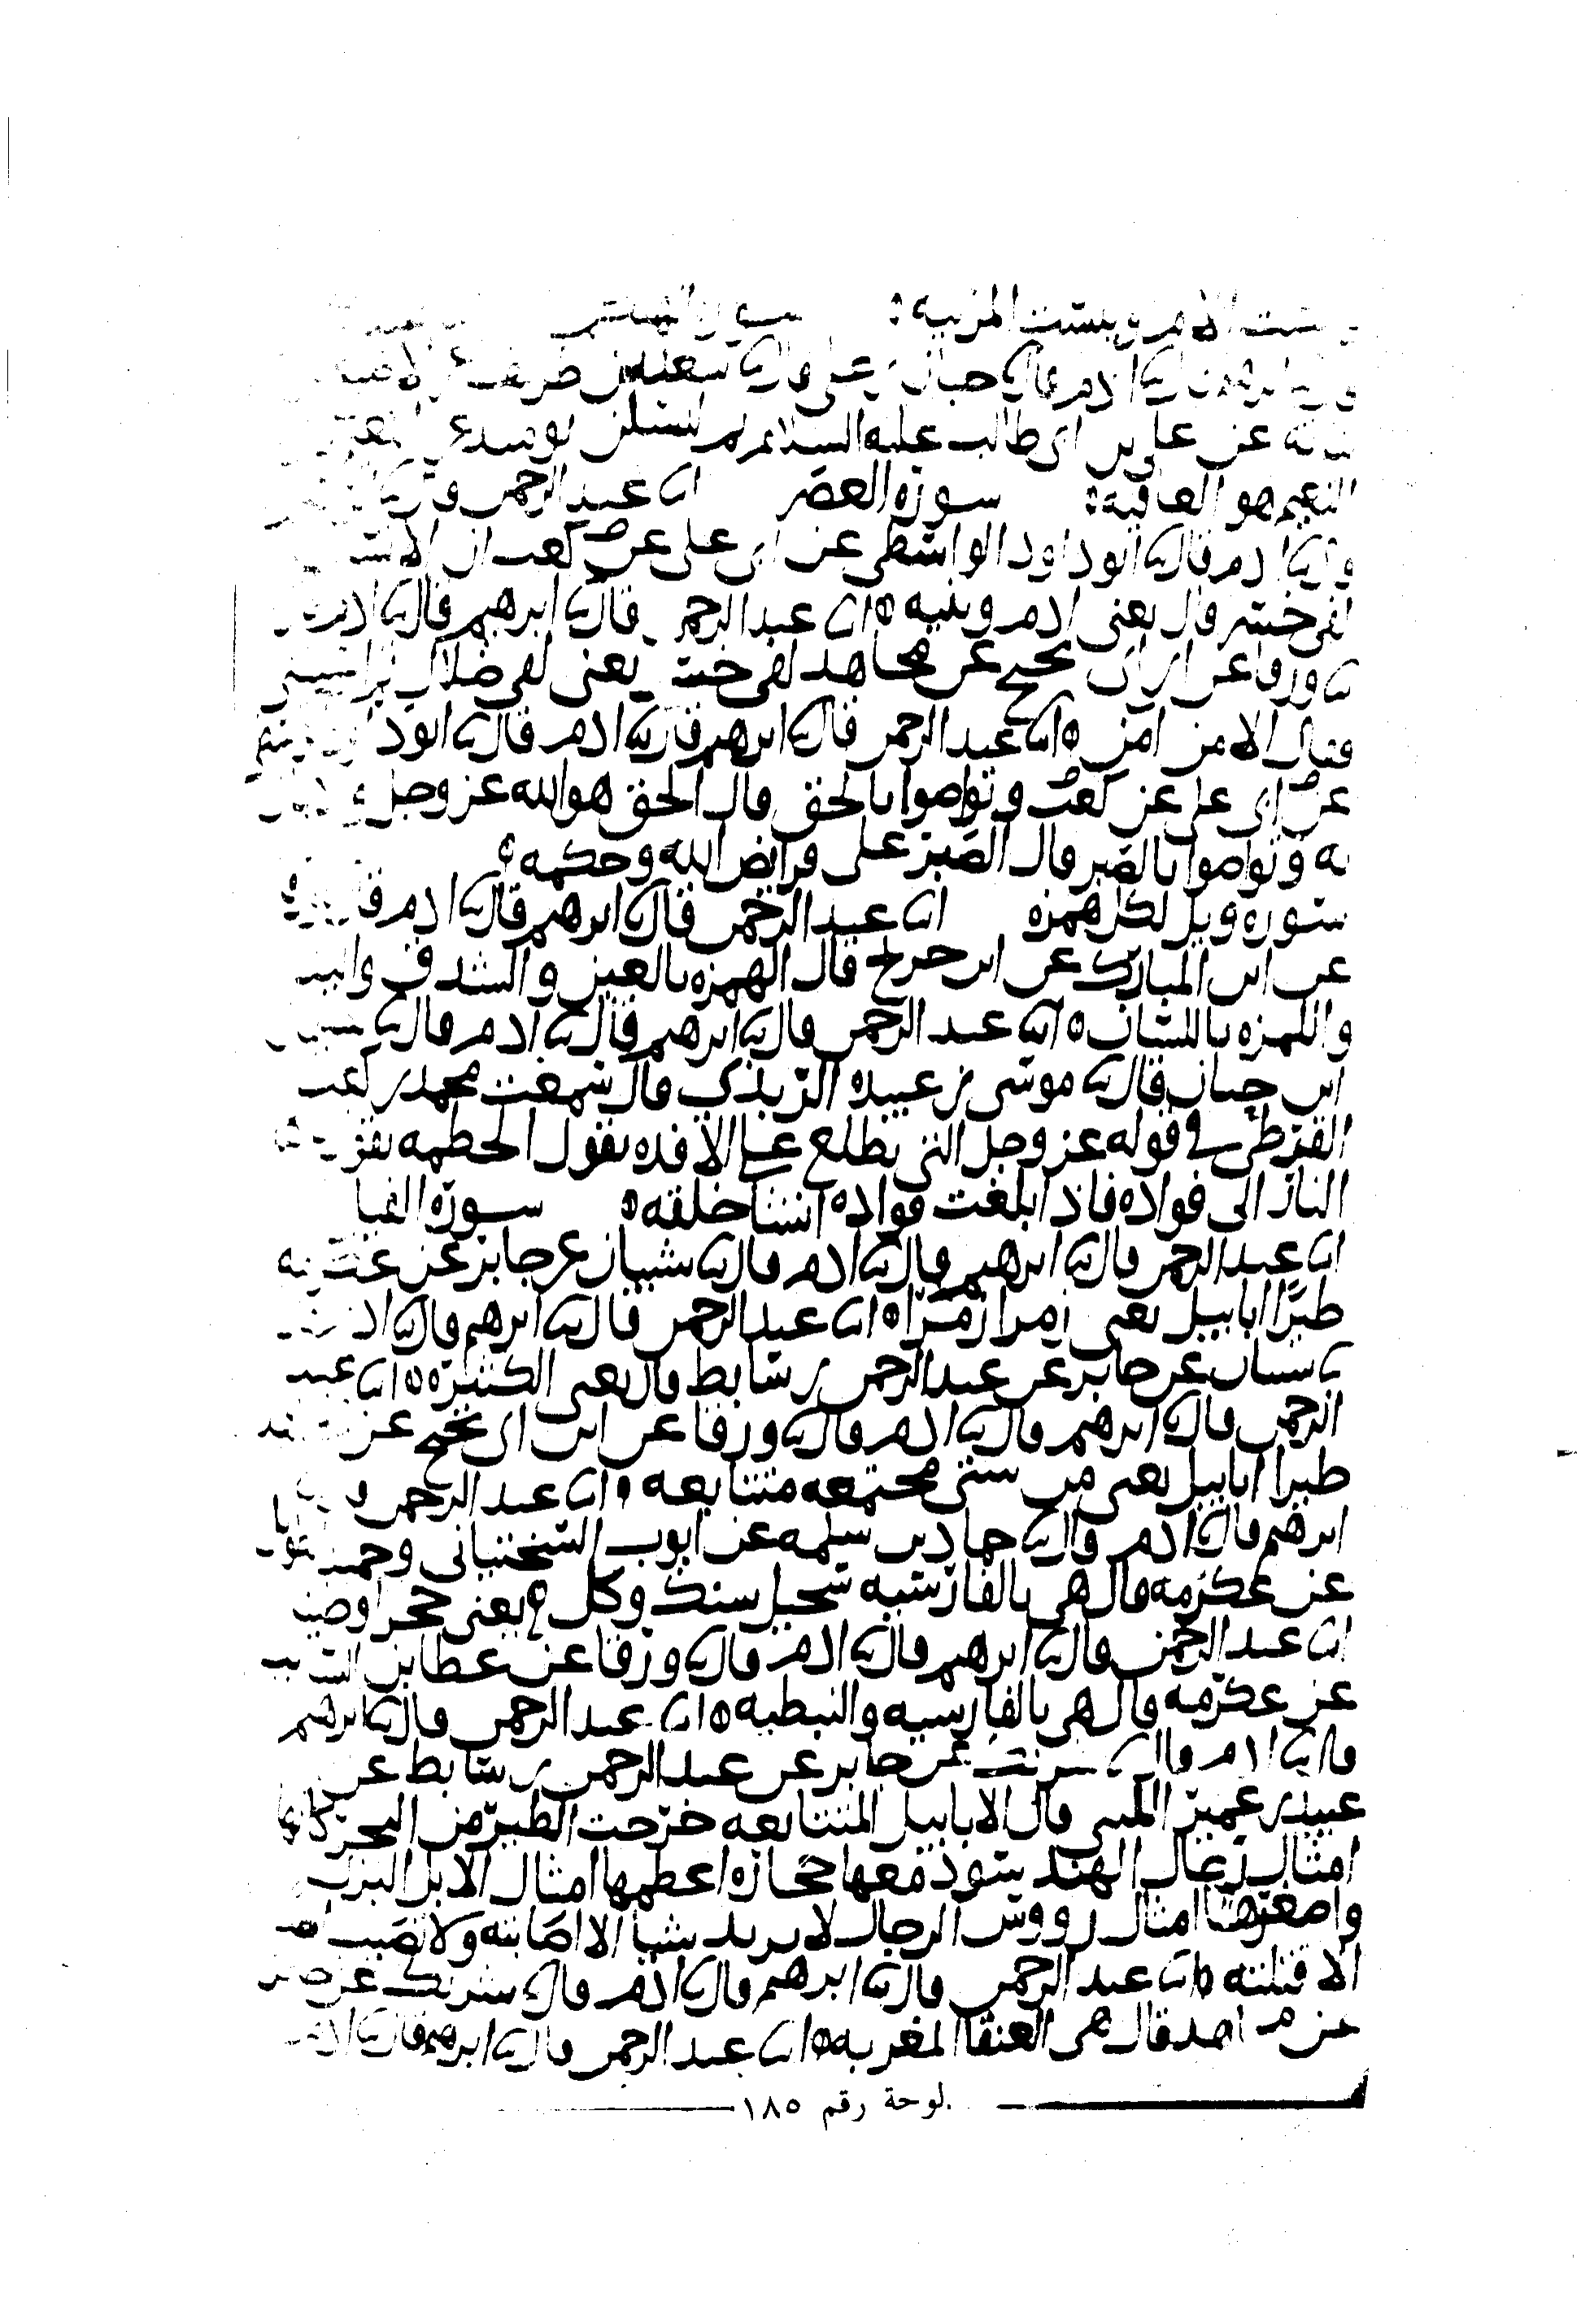 الام وبئست المربيه
ادم
عن على بن ابى طالب عليه السلام لتسلن يومىد عن
النعيم هو العافيه سورة العصر انا عبد الرحمن
ادم قال ىا ابو داود الواسطى عن ابى على عن كعب ان
لفى خسر قال يعنى ادم وبنيه ه انا عبد الرحمن قال ىا ابرهيم قال ىا ادم
ىا ورقا عن ابن ابى نجيح عن مجاهد لفى خسر يعنى لفى ضلال ثم استثنى
فقال الا من امن ه انا عبد الرحمن قال ىا ابرهيم قال ىا ادم قال ىا ابو
عن ابى على عن كعب وتواصوا بالحق قال الحق هو الله عز وجل
به وتواصوا بالصبر قال الصبر على فرايض الله وحكمه ه
سوره ويل لكل همزه انا عبد الرحمن قال ىا ابرهيم قال ىا ادم
عن ابن المبارك عن ابن جريج قال الهمزه بالعين والشدق واليد
واللمزه باللسان ه انا عبد الرحمن قال ىا ابرهيم قال ىا ادم قال ىا
ابن حبان قال ىا موسى بن عبيده الربذي قال سمعت محمد بن كعب
القرظى فى قوله عز وجل التى تطلع على الافده يقول الحطمه
النار الى فواده فاذا بلغت فواده انشا خلقه ه سورة الفيل
انا عبد الرحمن قال ىا ابرهيم قال ىا ادم قال ىا شيبان عن جابر عن
طيرا ابابيل يعنى زمرا زمرا ه انا عبد الرحمن قال ىا ابرهيم قال ىا
ىا شيبان عن جابر عن عبد الرحمن بن سابط قال يعنى الكثيره ه انا عبد
الرحمن قال ىا ابرهيم قال ىا ادم قال ىا ورقا عن ابن ابى نجيح عن
طيرا ابابيل يعنى من شتى مجتمعه متتابعه ه انا عبد الرحمن
ابرهيم قال ىا ادم قال ىا حماد بن سلمه عن ايوب السختيانى وحميد
عن عكرمه قال هى بالفارسيه سجيل سنك وكل ه يعنى حجر اوطين
انا عبد الرحمن قال ىا ابرهيم قال ىا ادم قال ىا ورقا عن عطا بن السايب
عن عكرمه قال هى بالفارسيه والنبطيه ه انا عبد الرحمن قال ىا ابرهيم
قال ىا ادم قال ىا شريك عن جابر عن عبد الرحمن بن سابط عن
عبيد بن عمير الليثى قال الابابيل المتتابعه خرجت الطير من البحر كانها
امثال رجال الهند سود معها حجاره اعظمها امثال الابل البزل
واصغرها امثال رووس الرجال لا يريد شيا الا اصابته ولا تصيب
الا قتلته ه انا عبد الرحمن قال ىا ابرهيم قال ىا ادم قال ىا شريك عن
عن مجاهد قال هى العنقا المغربه ه انا عبد الرحمن قال ىا ابرهيم قال ىا
لوحة رقم ١٨٥